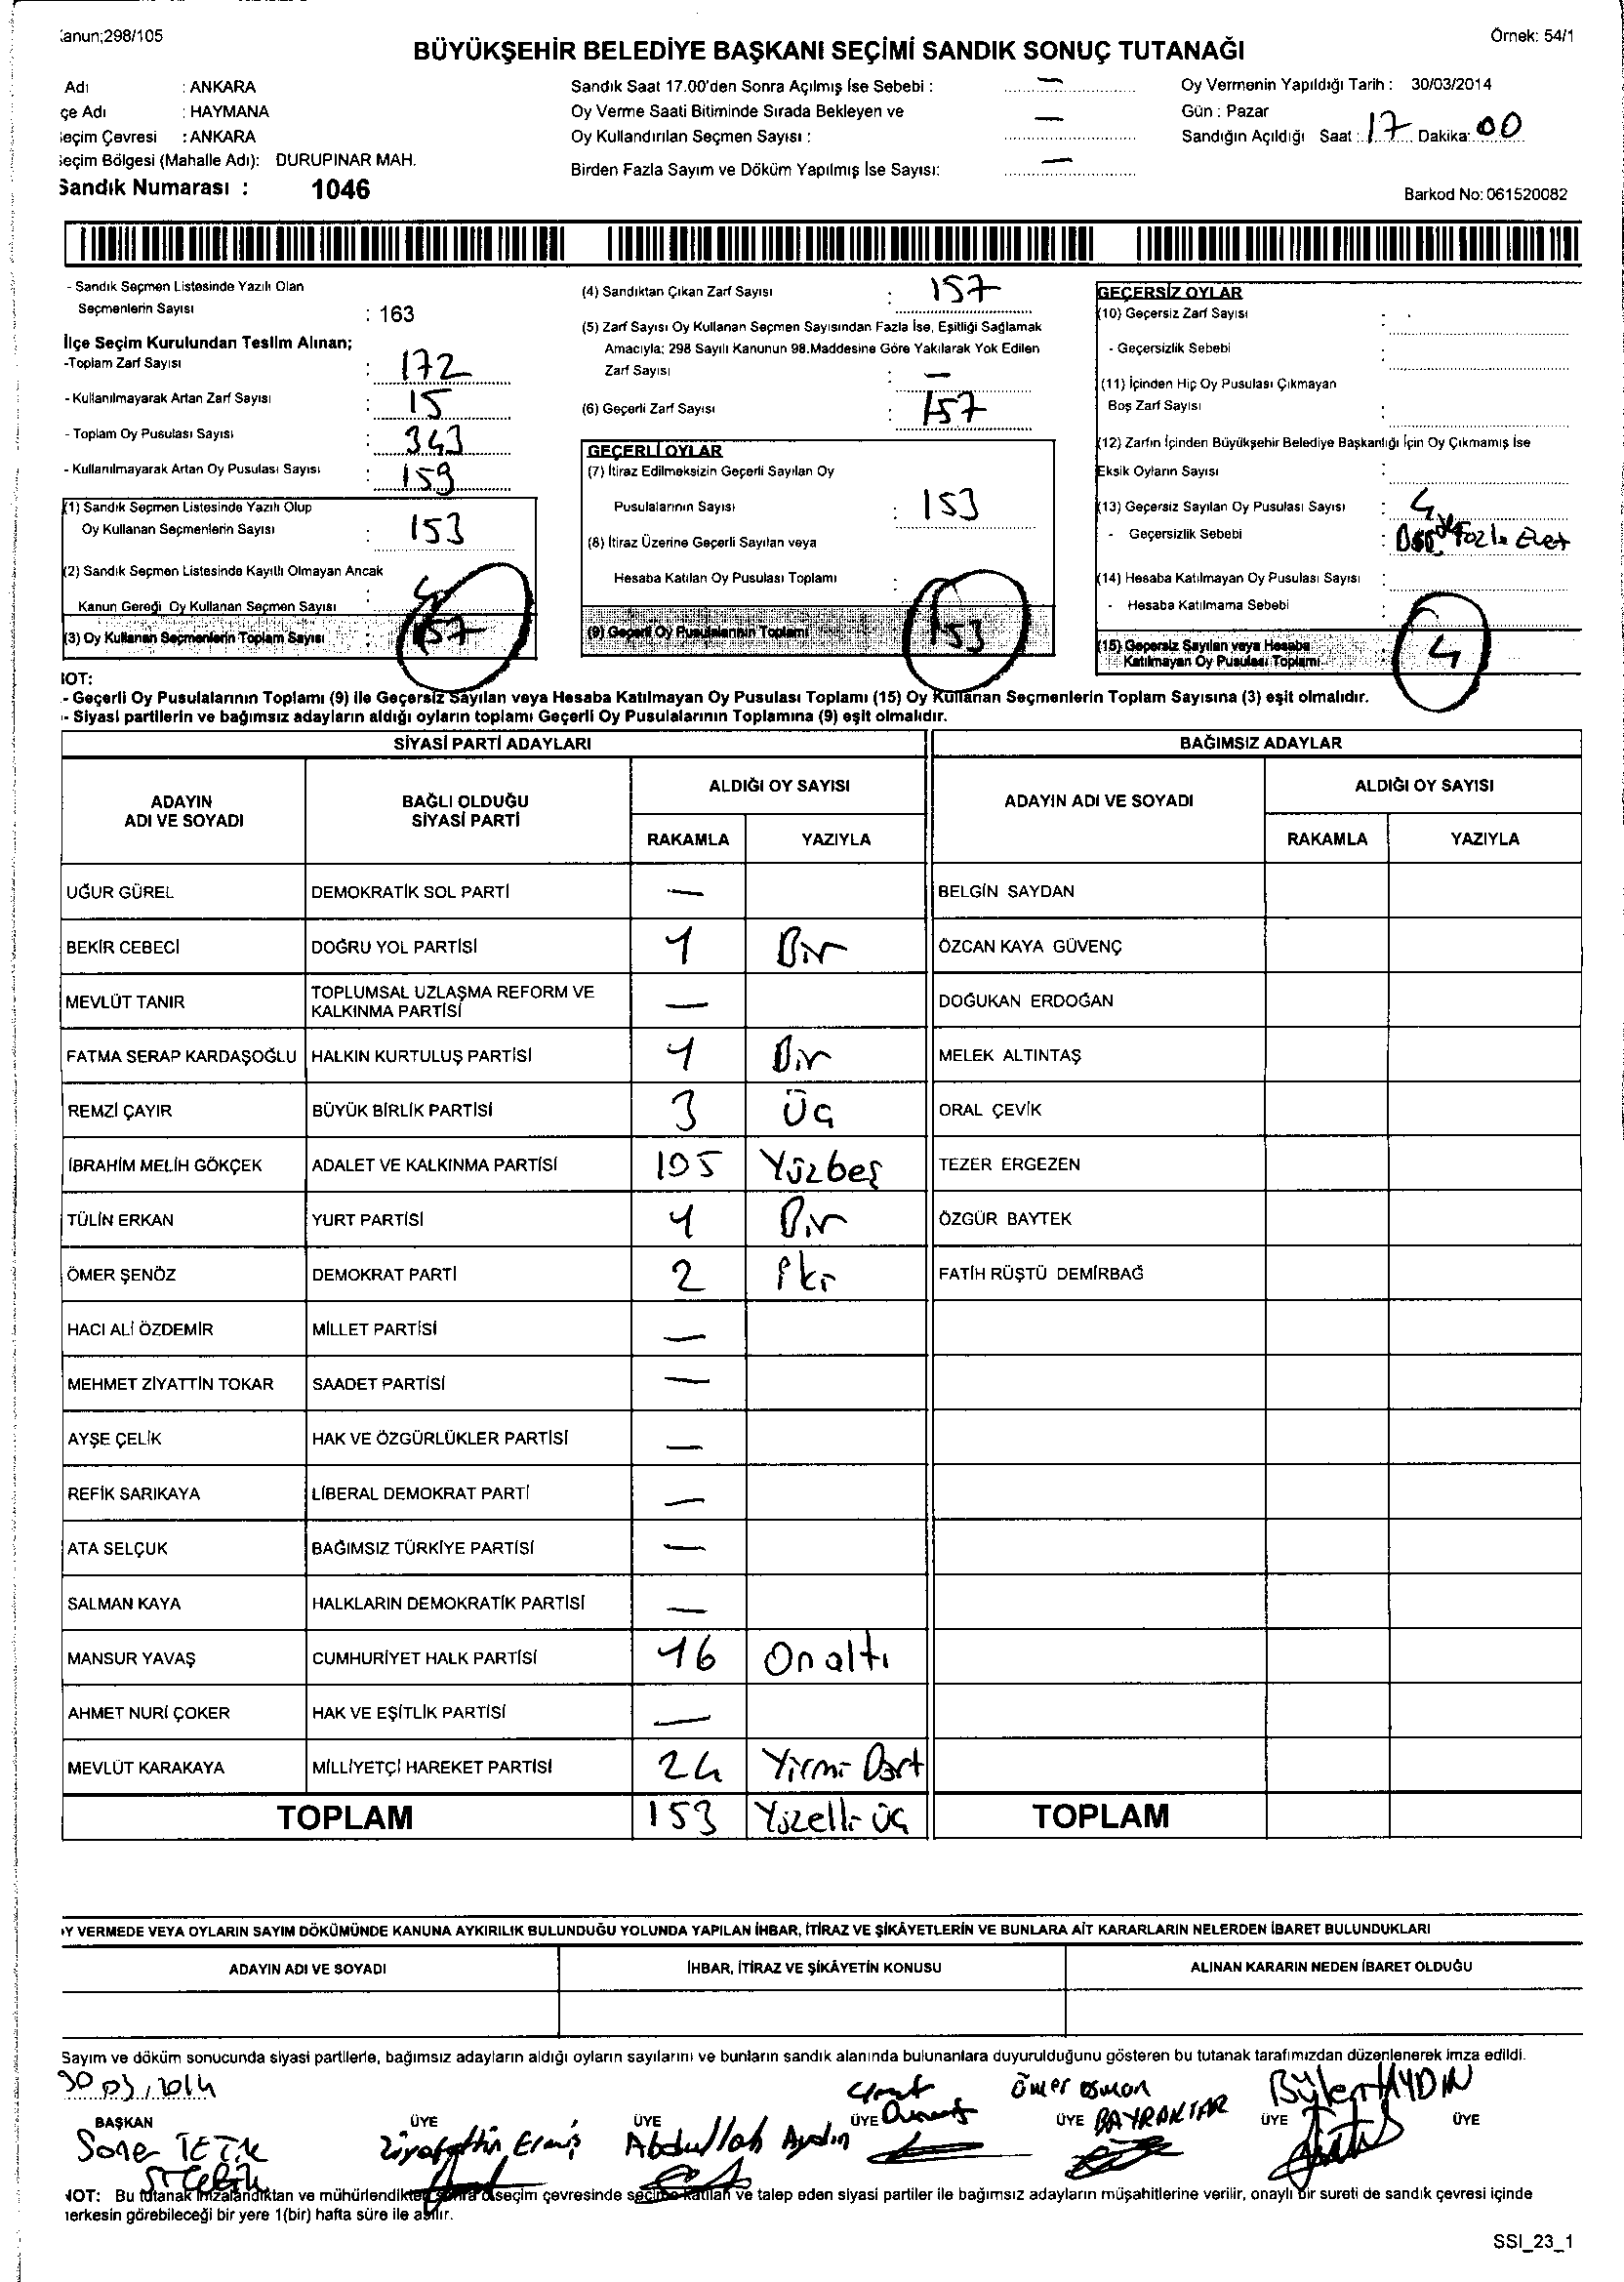 Kanun;298/105
Örnek: 54/1
BÜYÜKŞEHİR BELEDİYE BAŞKANI SEÇİMİ SANDIK SONUÇ TUTANAĞI
Adı : ANKARA
çe Adı : HAYMANA
eçim Çevresi : ANKARA
eçim Bölgesi (Mahalle Adı): DURUPINAR MAH.
Sandık Numarası : 1046
Sandık Saat 17.00'den Sonra Açılmış İse Sebebi : —
Oy Verme Saati Bitiminde Sırada Bekleyen ve
Oy Kullandırılan Seçmen Sayısı : —
Birden Fazla Sayım ve Döküm Yapılmış İse Sayısı: —
Oy Vermenin Yapıldığı Tarih : 30/03/2014
Gün : Pazar
Sandığın Açıldığı Saat : 17 Dakika: 00
Barkod No: 061520082
- Sandık Seçmen Listesinde Yazılı Olan
Seçmenlerin Sayısı : 163
İlçe Seçim Kurulundan Teslim Alınan;
-Toplam Zarf Sayısı : 172
- Kullanılmayarak Artan Zarf Sayısı : 15
- Toplam Oy Pusulası Sayısı : 343
- Kullanılmayarak Artan Oy Pusulası Sayısı : 159
(1) Sandık Seçmen Listesinde Yazılı Olup
Oy Kullanan Seçmenlerin Sayısı : 153
(2) Sandık Seçmen Listesinde Kayıtlı Olmayan Ancak
Kanun Gereği Oy Kullanan Seçmen Sayısı : 4
(3) Oy Kullanan Seçmenlerin Toplam Sayısı : 157
(4) Sandıktan Çıkan Zarf Sayısı : 157
(5) Zarf Sayısı Oy Kullanan Seçmen Sayısından Fazla İse, Eşitliği Sağlamak
Amacıyla; 298 Sayılı Kanunun 98.Maddesine Göre Yakılarak Yok Edilen
Zarf Sayısı : —
(6) Geçerli Zarf Sayısı : 157
GEÇERLİ OYLAR
(7) İtiraz Edilmeksizin Geçerli Sayılan Oy
Pusulalarının Sayısı : 153
(8) İtiraz Üzerine Geçerli Sayılan veya
Hesaba Katılan Oy Pusulası Toplamı :
(9) Geçerli Oy Pusulalarının Toplamı 153
GEÇERSİZ OYLAR
(10) Geçersiz Zarf Sayısı :
- Geçersizlik Sebebi :
(11) İçinden Hiç Oy Pusulası Çıkmayan
Boş Zarf Sayısı :
(12) Zarfın İçinden Büyükşehir Belediye Başkanlığı İçin Oy Çıkmamış İse
Eksik Oyların Sayısı :
(13) Geçersiz Sayılan Oy Pusulası Sayısı : 4
- Geçersizlik Sebebi : Fazla Evet
(14) Hesaba Katılmayan Oy Pusulası Sayısı :
- Hesaba Katılmama Sebebi :
(15) Geçersiz Sayılan veya Hesaba
Katılmayan Oy Pusulası Toplamı 4
NOT:
- Geçerli Oy Pusulalarının Toplamı (9) ile Geçersiz Sayılan veya Hesaba Katılmayan Oy Pusulası Toplamı (15) Oy Kullanan Seçmenlerin Toplam Sayısına (3) eşit olmalıdır.
- Siyasi partilerin ve bağımsız adayların aldığı oyların toplamı Geçerli Oy Pusulalarının Toplamına (9) eşit olmalıdır.
SİYASİ PARTİ ADAYLARI BAĞIMSIZ ADAYLAR
ADAYIN ADI VE SOYADI BAĞLI OLDUĞU SİYASİ PARTİ ALDIĞI OY SAYISI ADAYIN ADI VE SOYADI ALDIĞI OY SAYISI
RAKAMLA YAZIYLA RAKAMLA YAZIYLA
UĞUR GÜREL DEMOKRATİK SOL PARTİ — BELGİN SAYDAN
BEKİR CEBECİ DOĞRU YOL PARTİSİ 1 Bir ÖZCAN KAYA GÜVENÇ
MEVLÜT TANIR TOPLUMSAL UZLAŞMA REFORM VE KALKINMA PARTİSİ — DOĞUKAN ERDOĞAN
FATMA SERAP KARDAŞOĞLU HALKIN KURTULUŞ PARTİSİ 1 Bir MELEK ALTINTAŞ
REMZİ ÇAYIR BÜYÜK BİRLİK PARTİSİ 3 Üç ORAL ÇEVİK
İBRAHİM MELİH GÖKÇEK ADALET VE KALKINMA PARTİSİ 105 Yüzbeş TEZER ERGEZEN
TÜLİN ERKAN YURT PARTİSİ 1 Bir ÖZGÜR BAYTEK
ÖMER ŞENÖZ DEMOKRAT PARTİ 2 İki FATİH RÜŞTÜ DEMİRBAĞ
HACI ALİ ÖZDEMİR MİLLET PARTİSİ —
MEHMET ZİYATTİN TOKAR SAADET PARTİSİ —
AYŞE ÇELİK HAK VE ÖZGÜRLÜKLER PARTİSİ —
REFİK SARIKAYA LİBERAL DEMOKRAT PARTİ —
ATA SELÇUK BAĞIMSIZ TÜRKİYE PARTİSİ —
SALMAN KAYA HALKLARIN DEMOKRATİK PARTİSİ —
MANSUR YAVAŞ CUMHURİYET HALK PARTİSİ 16 Onaltı
AHMET NURİ ÇOKER HAK VE EŞİTLİK PARTİSİ —
MEVLÜT KARAKAYA MİLLİYETÇİ HAREKET PARTİSİ 24 Yirmi Dört
TOPLAM 153 Yüzelli üç TOPLAM
Y VERMEDE VEYA OYLARIN SAYIM DÖKÜMÜNDE KANUNA AYKIRILIK BULUNDUĞU YOLUNDA YAPILAN İHBAR, İTİRAZ VE ŞİKÂYETLERİN VE BUNLARA AİT KARARLARIN NELERDEN İBARET BULUNDUKLARI
ADAYIN ADI VE SOYADI İHBAR, İTİRAZ VE ŞİKÂYETİN KONUSU ALINAN KARARIN NEDEN İBARET OLDUĞU
Sayım ve döküm sonucunda siyasi partilerle, bağımsız adayların aldığı oyların sayılarını ve bunların sandık alanında bulunanlara duyurulduğunu gösteren bu tutanak tarafımızdan düzenlenerek imza edildi.
30.03.2014
BAŞKAN ÜYE ÜYE ÜYE ÜYE ÜYE ÜYE
Ömer Osman BAYRAKTAR
AYDIN
Abdullah Aydın
NOT: Bu tutanak imzalandıktan ve mühürlendikten sonra o seçim çevresinde seçime katılan ve talep eden siyasi partiler ile bağımsız adayların müşahitlerine verilir, onaylı bir sureti de sandık çevresi içinde
herkesin görebileceği bir yere 1(bir) hafta süre ile asılır.
SSI_23_1